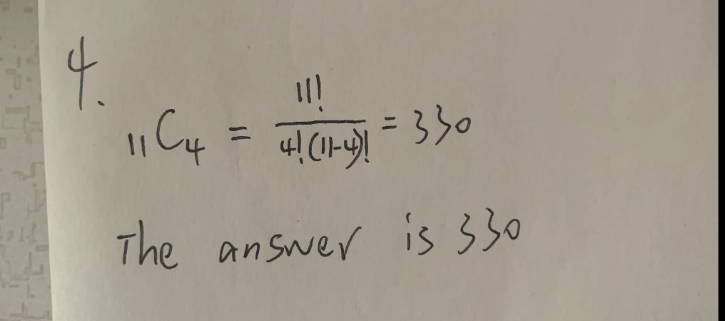 4.
₁₁C₄ = 11!/4!(11-4)! = 330
The answer is 330